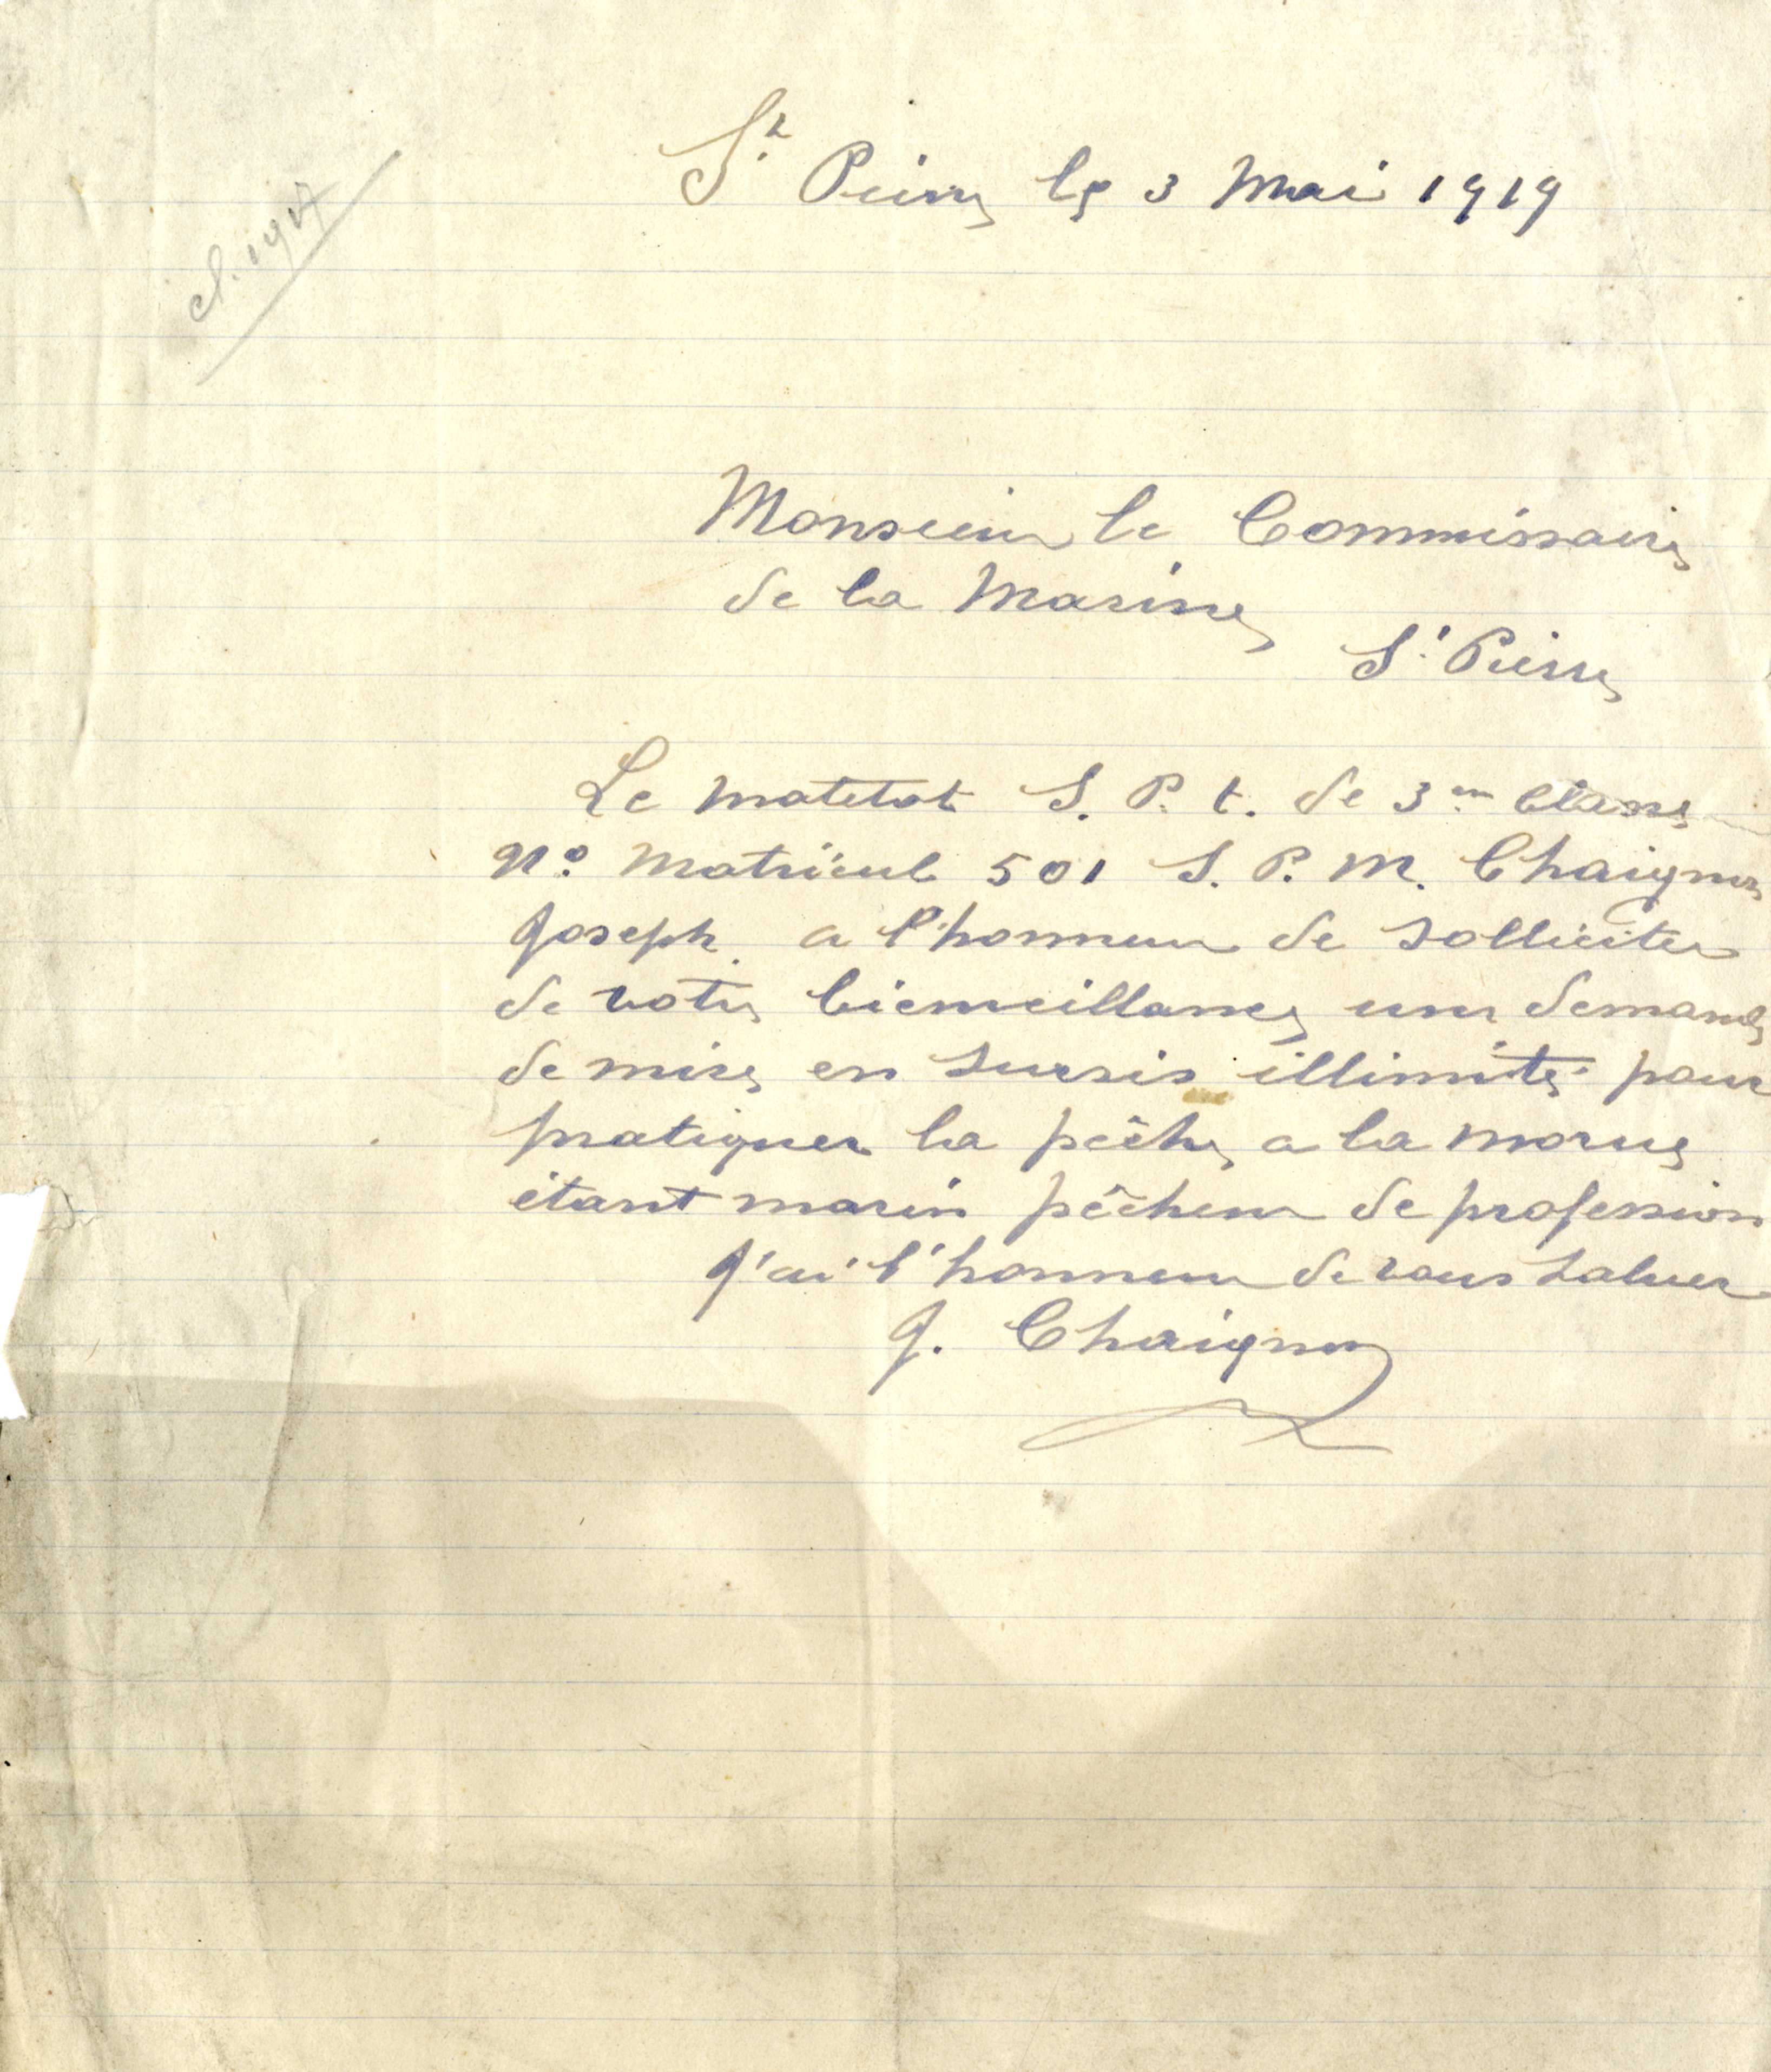 cl. 1917
St Pierre le 3 Mai 1919
Monsieur le Commissaire
de la Marine
St Pierre
Le matelot S. P. t. de 3me Classe
No Matricul 501 S. P. M. Chaignon
Joseph a l'honneur de solliciter
de votre bienveillance une demande
de mise en sursis illimité pour
pratiquer la pêche a la morue
étant marin pêcheur de profession
J'ai l'honneur de vous saluer
J. Chaignon